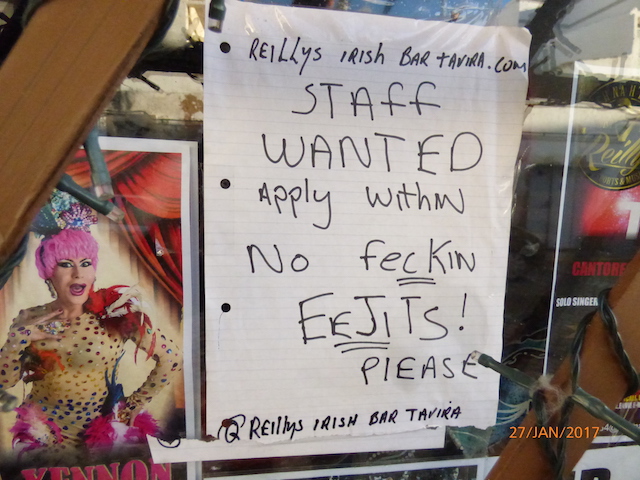 REILLYS IRISH BAR TAVIRA.COM
STAFF
WANTED
Apply within
No feckin
EEJITS!
PLEASE
@ REILLYS IRISH BAR TAVIRA
XENNON
Reilly
SOLO SINGER
27/JAN/2017